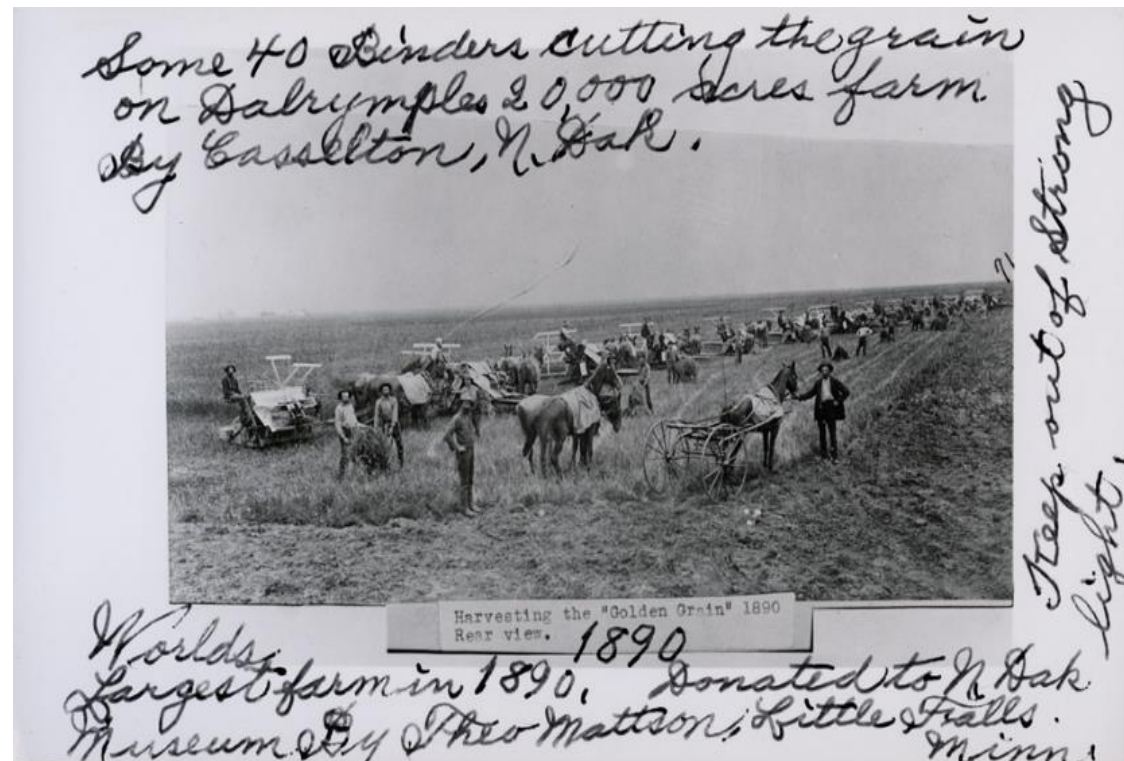 Some 40 Binders cutting the grain
on Dalrymples 20,000 acres farm
By Casselton, N. Dak.
71
Keep out of strong
light.
Harvesting the "Golden Grain" 1890
Rear view.
1890
Worlds
Largest farm in 1890. Donated to N Dak
Museum By Theo Mattson, Little Falls.
Minn.